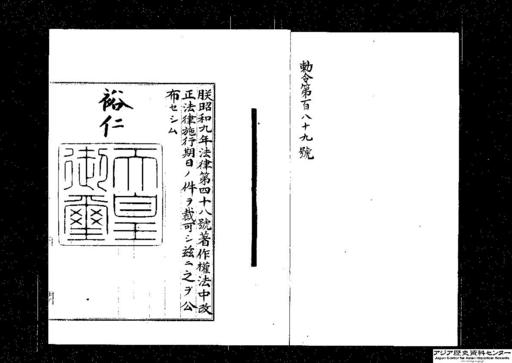 勅令第百八十九號
朕昭和九年法律第四十八號著作權法中改
正法律施行期日ノ件ヲ裁可シ茲ニ之ヲ公
布セシム
裕仁
天皇
御璽
アジア歴史資料センター
Japan Center for Asian Historical Records